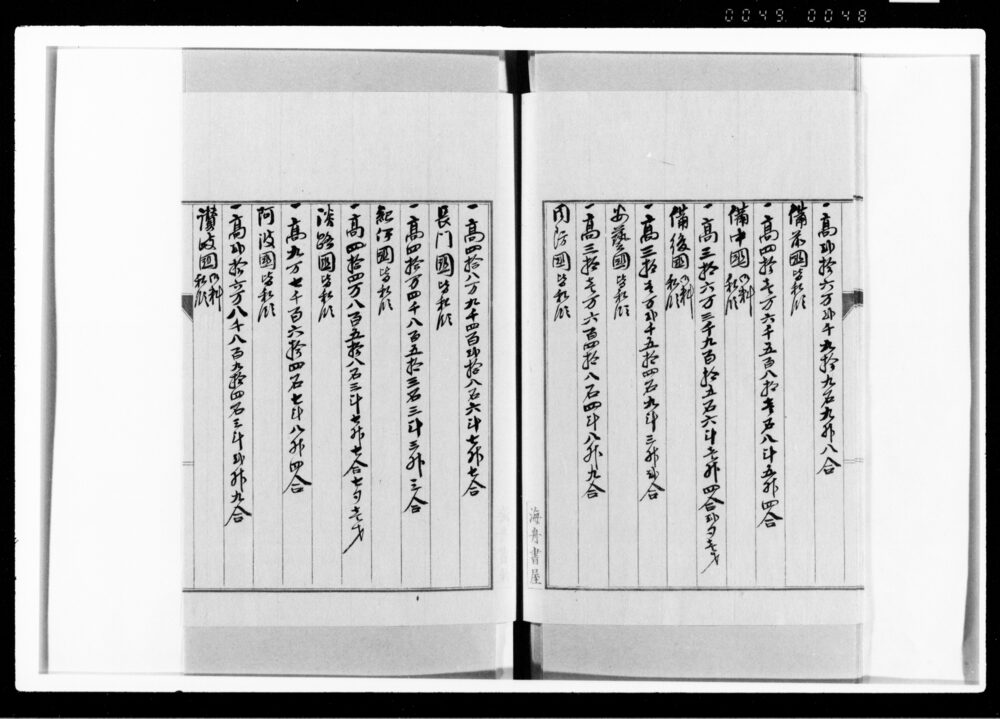 0049. 0048
一高弐拾六万弐千九拾九石九升八合
備前國皆私領
一高四拾壱万六千五百八拾壱石八斗五升四合
備中國御料私領
一高三拾六万三千九百拾五石六斗壱升四合弐勺壱才
備後國御料私領
一高三拾壱万弐千五拾四石九斗三升弐合
安藝國皆私領
一高三拾壱万六百四拾八石四斗八升九合
周防國皆私領
海舟書屋
一高四拾八万九千四百弐拾八石六斗七升七合
長门國皆私領
一高四拾万四千八百五拾三石三斗三升三合
紀伊國皆私領
一高四拾四万八百五拾八石三斗七升七合七勺壱才
淡路國皆私領
一高九万七千百六拾四石七斗八升四合
阿波國皆私領
一高弐拾六万八千八百九拾四石三斗弐升九合
讃岐國御料私領